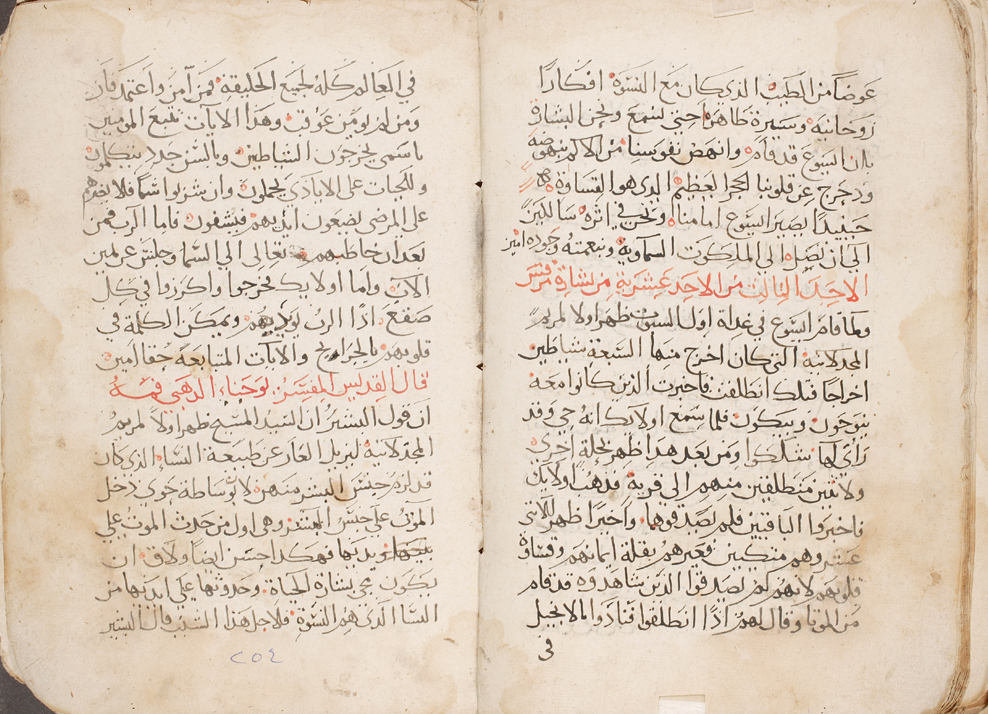 عوضاً من الطيب الذي كان مع النسوة افكارًا
روحانية وسيرة طاهرة حتي نسمع ونحن البشارة
بان ايسوع قد قام وانهض نفوسنا من الالام بنهوضه
ودحرج عن قلوبنا الحجر العظيم الذي هو القساوة
حينيدًا يصير ايسوع امامنا ونحن في اثره سالكين
الي ان نصل الي الملكوت السماوية ونعمته وجوده امين
الاحد الثالث من الاحد عشرية من بشارة مرقس
ولما قام ايسوع في غداة اول السبوت ظهر اولا لمريم
المجدلانية التي كان اخرج منها السبعة شياطين
اخراجًا فتلك انطلقت فاخبرت الذين كانوا معه
ينوحون ويبكون فلما سمع اولايك انه حي وقد
راي لها شكوا ومن بعد هذا ظهر بحلة اخري
ولاثنين منطلقين منهم الي قرية فذهبا اولايك
فاخبروا الباقيين فلم يصدقوهما واخيرًا ظهر للاثني
عشر وهم متكيين فعيرهم بقلة ايمانهم وقساوة
قلوبهم لانهم لم يصدقوا الذين شاهدوه قد قام
من الموتا وقال لهم اذًا انطلقوا فنادوا بالانجيل
في
في العالم كله لجميع الخليقة فمن آمن واعتمد فاز
ومن لم يومن عوقب وهذا الايات تتبع المومنين
باسمي يخرجون الشياطين وبالسن جدد يتكلمون
وللحيات علي الايادي يحملون وان شربوا سمًا فلا يضرهم
علي المرضي يضعون ايديهم فيشفون فاما الرب فمن
بعد ان خاطبهم تعالي الي السما وجلس عن يمين
الآب واما اولايك فخرجوا واكرزوا في كل
صقع اذًا الرب يويدهم ويمكن الكلمة في
قلوبهم بالجرايح والايات المتتابعة حقا امين
قال القديس المفسر يوحنا الدهبي فمه
ان قول البشير ان السيد المسيح ظهر اولا لمريم
المجدلانية ليزيل العار عن طبيعة النساء الذي كان
قد لزم جنس البشر منهن لا بوساطة حوي دخل
الموت علي جنس البشر وهي اول من حدث الموت علي
يديها فهكدا احسن ايضا ولاق ان
يكون مجي بشارة الحياة وحدوثها علي ايديها من
النسا الذي هم النسوة فلاجل هذا السبب قال البشير
٢٥٤